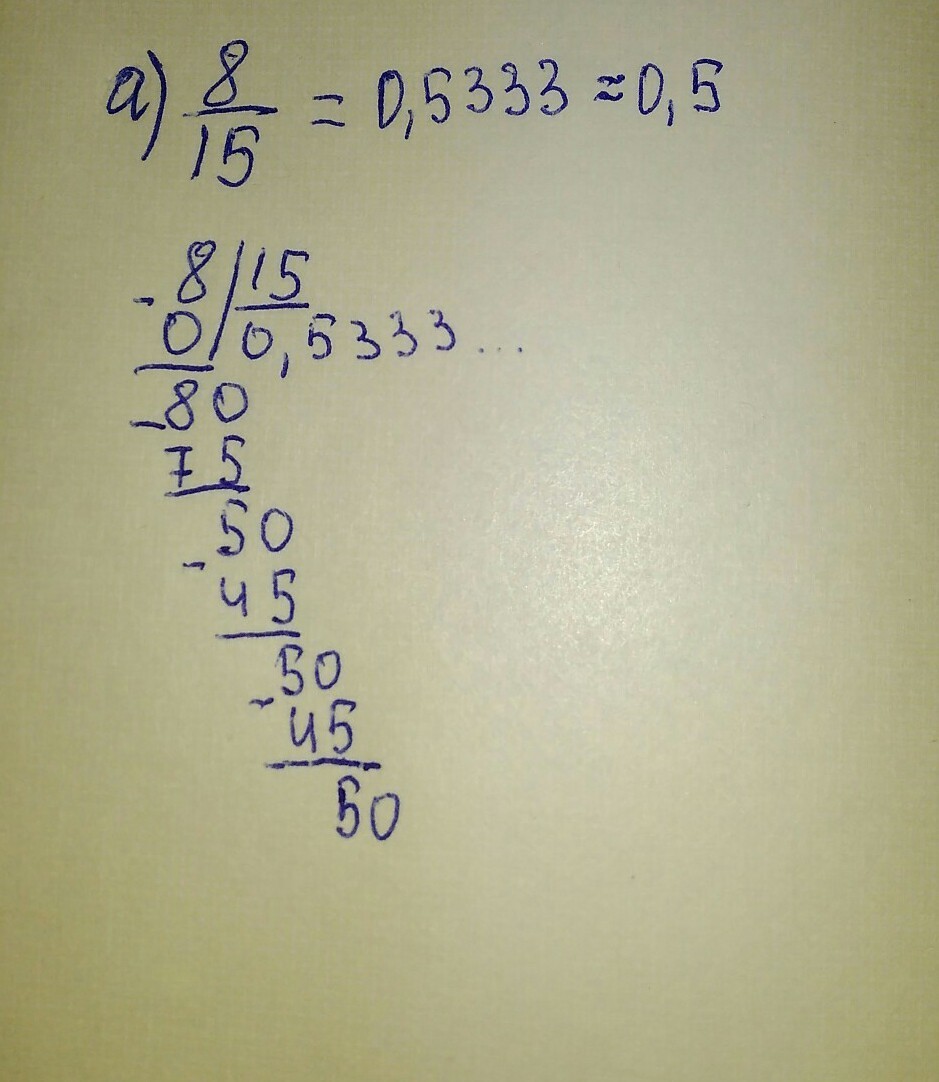 а) 8/15 = 0,5333 ≈ 0,5
-8 | 15
0 | 0,5333...
-80
75
-50
45
-50
45
50